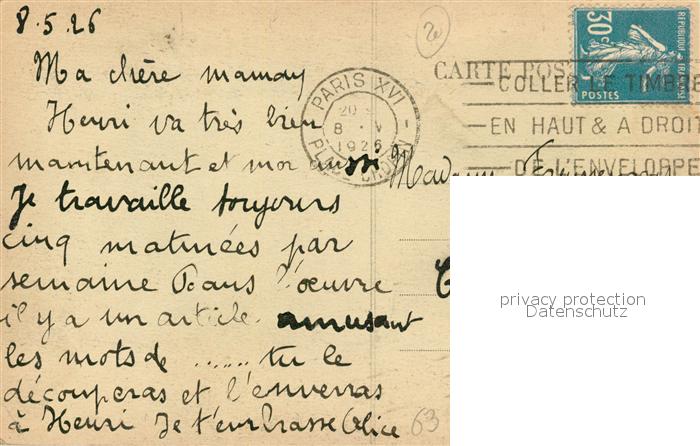 8.5.26
Ma chère maman
Henri va très bien
maintenant et moi aussi
Je travaille toujours
cinq matinées par
semaine Dans l'œuvre
il y a un article amusant
les mots de ...... tu le
découperas et l'enverras
à Henri Je t'embrasse Alice
63
2
CARTE POSTALE
PARIS XVI
20
8 V
1926
COLLER LE TIMBRE
EN HAUT & A DROITE
DE L'ENVELOPPE
30c
POSTES
REPUBLIQUE FRANÇAISE
Madame
privacy protection
Datenschutz